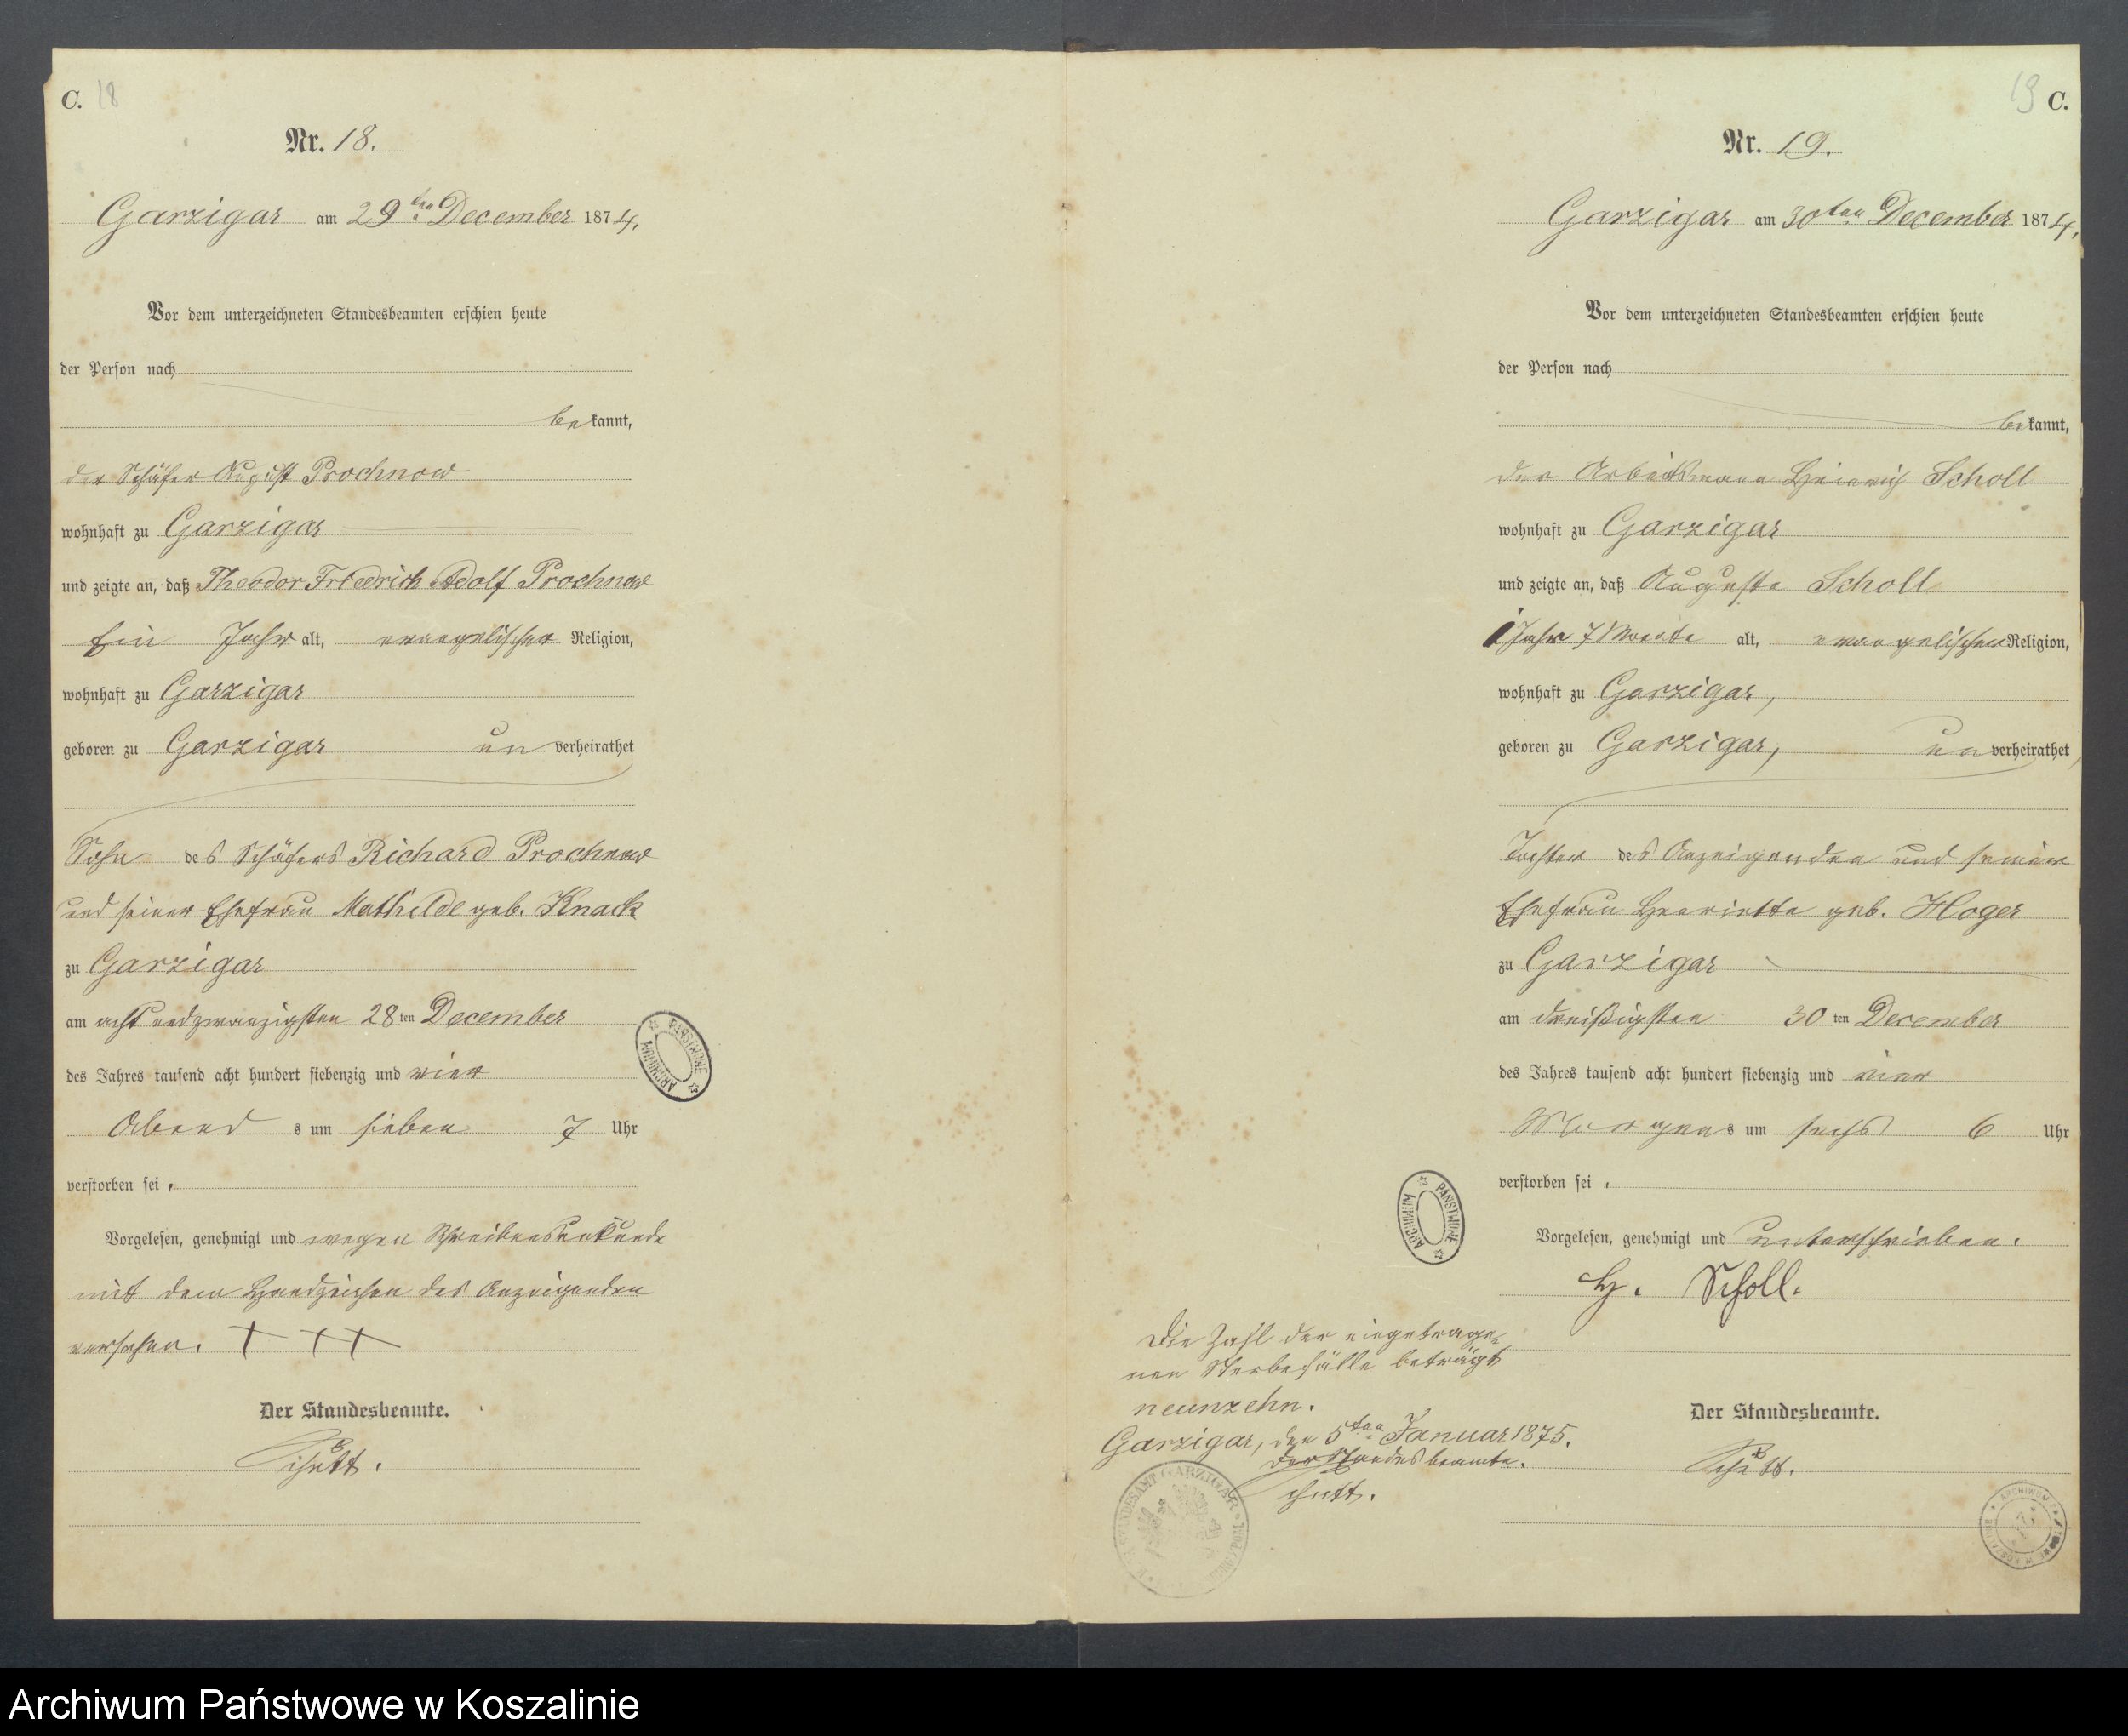 C. 18
Nr. 18.
Garzigar am 29ten December 1874.
Vor dem unterzeichneten Standesbeamten erschien heute
der Person nach
bekannt,
der Schäfer August Prochnow
wohnhaft zu Garzigar
und zeigte an, daß Theodor Friedrich Adolf Prochnow
Ein Jahr alt, evangelischer Religion,
wohnhaft zu Garzigar
geboren zu Garzigar unverheirathet
Sohn des Schäfers Richard Prochnow
und seiner Ehefrau Mathilde geb. Knack
zu Garzigar
am acht und zwanzigsten 28ten December
des Jahres tausend acht hundert siebenzig und vier
Abends um sieben 7 Uhr
verstorben sei.
Vorgelesen, genehmigt und wegen Schreibensunkunde
mit dem Handzeichen des Anzeigenden
versehen. + + +
Der Standesbeamte.
Schütt.
PAŃSTWOWE ARCHIWUM
19 C.
Nr. 19.
Garzigar am 30ten December 1874.
Vor dem unterzeichneten Standesbeamten erschien heute
der Person nach
bekannt,
der Arbeitsmann Heinrich Scholl
wohnhaft zu Garzigar
und zeigte an, daß Auguste Scholl
1 Jahr 7 Monate alt, evangelischer Religion,
wohnhaft zu Garzigar,
geboren zu Garzigar, unverheirathet
Tochter des Anzeigenden und seiner
Ehefrau Henriette geb. Hoger
zu Garzigar
am dreißigsten 30ten December
des Jahres tausend acht hundert siebenzig und vier
Morgens um sechs 6 Uhr
verstorben sei.
Vorgelesen, genehmigt und unterschrieben.
H. Scholl.
Der Standesbeamte.
Schütt.
PAŃSTWOWE ARCHIWUM
Die Zahl der eingetrage-
nen Sterbefälle beträgt
neunzehn.
Garzigar, den 5ten Januar 1875.
Der Standesbeamte.
Schütt.
STANDESAMT GARZIGAR
Archiwum Państwowe w Koszalinie